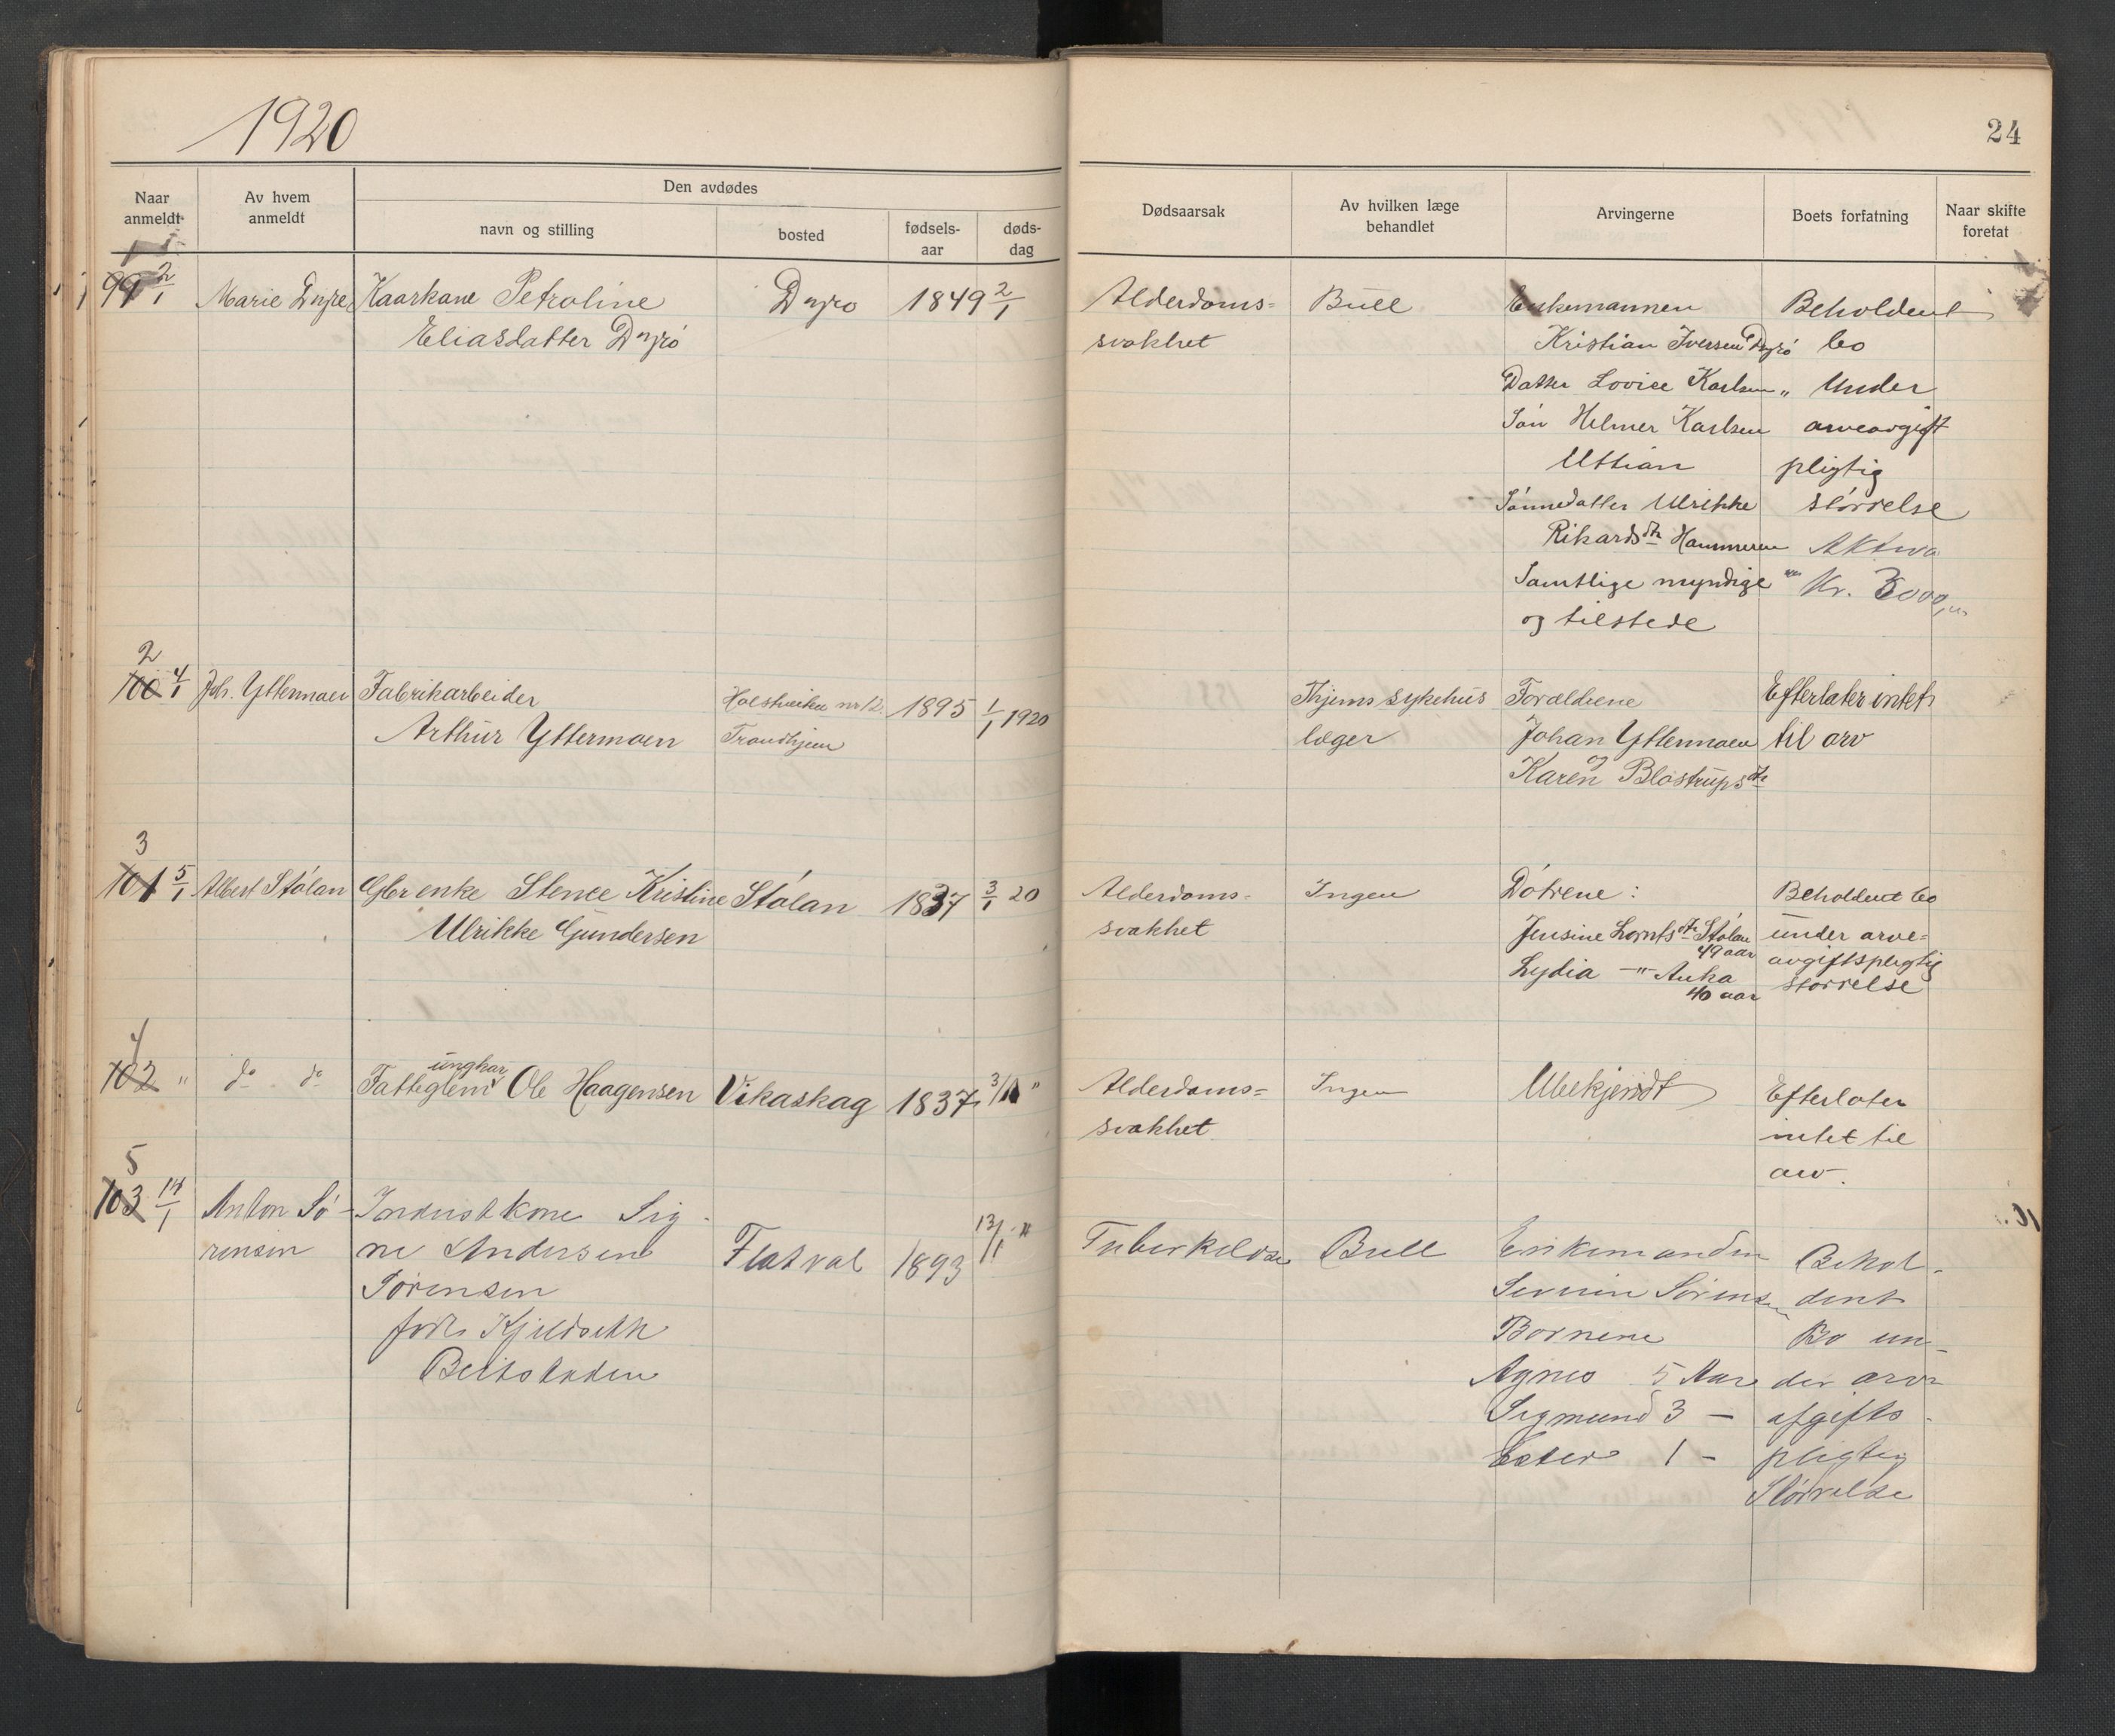 1920
24
Naar anmeldt
Av hvem anmeldt
Den avdødes
navn og stilling
bosted
fødsels-aar
døds-dag
Dødsaarsak
Av hvilken læge behandlet
Arvingerne
Boets forfatning
Naar skifte foretat
1
99 2/1
Marie Dyrø
Kaarkone Petroline
Eliasdatter Dyrø
Dyrø
1849
2/1
Alderdoms=
svakhet
Bull
Enkemannen
Kristian Iversen Dyrø
Datter Lovise Karlsen "
Søn Helmer Karlsen
Uttian
Sønnedatter Ulrikke
Rikardsdtr Hammeren
Samtlige myndige
og tilstede
Beholdent
bo
under
arveavgift
pligtig
størrelse
Aktiva
Kr. 3000,
2
100 4/1
Joh. Yttermoen
Fabrikarbeider
Arthur Yttermoen
nr 12.
Trondhjem
1895
1/1 1920
Thjems sykehus
læger
Forældrene
Johan Yttermoen
og
Karen Blostrupsdtr
Efterlater intet
til arv
3
101 5/1
Albert Stølan
Gbr enke Stence Kristine
Ulrikke Gundersen
Stølan
1837
3/1 20
Alderdoms-
svakhet
Ingen
Døtrene:
Jensine Lorntsdtr Stølan
49 aar
Lydia —"— Auka
40 aar
Beholdent bo
under arve=
avgiftspligtig
størrelse
4
102 "
do do
ungkar
Fatteglem Ole Haagensen
Vikaskag
1837
3/1 "
Alderdoms=
svakhet
Ingen
Ubekjendt
Efterlater
intet til
arv.
5
103 14/1
Anton Sø-
rensen
Inderstkone Sig-
ne Andersen
Sørensen
født Kjeldseth
Beitstaden
Flatval
1893
13/1 "
Tuberkulose
Bull
Enkemanden
Sørensen
Børnene
Agnes 5 Aar
Sigmund 3 —
Ester 1 —
Behol-
dent
Bo un-
der arv
afgifts-
pligtig
Størrelse